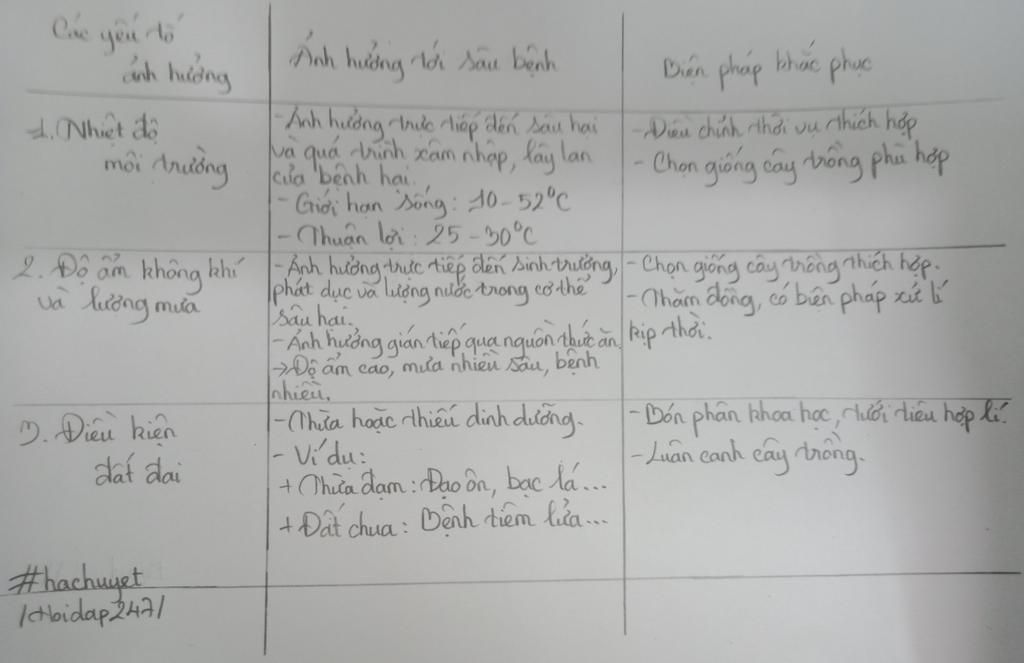 Các yếu tố
ảnh hưởng
Ảnh hưởng tới sâu bệnh
Biện pháp khắc phục
1. Nhiệt độ
môi trường
- Ảnh hưởng trực tiếp đến sâu hại
và quá trình xâm nhập, lây lan
của bệnh hại.
- Giới hạn sống: 10-52°C
- Thuận lợi: 25-30°C
- Điều chỉnh thời vụ thích hợp
- Chọn giống cây trồng phù hợp
2. Độ ẩm không khí
và lượng mưa
- Ảnh hưởng trực tiếp đến sinh trưởng,
phát dục và lượng nước trong cơ thể
sâu hại.
- Ảnh hưởng gián tiếp qua nguồn thức ăn.
→ Độ ẩm cao, mưa nhiều sâu, bệnh
nhiều.
- Chọn giống cây trồng thích hợp.
- Thăm đồng, có biện pháp xử lí
kịp thời.
3. Điều kiện
đất đai
- Thừa hoặc thiếu dinh dưỡng.
- Ví dụ:
+ Thừa đạm: Đạo ôn, bạc lá...
+ Đất chua: Bệnh tiêm lửa...
- Bón phân khoa học, tưới tiêu hợp lí.
- Luân canh cây trồng.
#hachuyet
/ctbidap247/